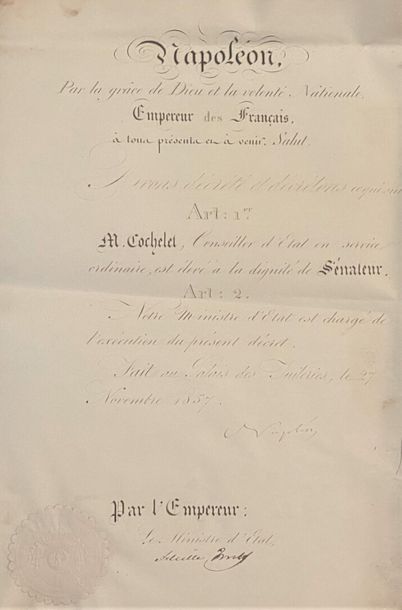 Napoléon,
Par la grâce de Dieu et la volonté Nationale,
Empereur des Français,
à tous présents et à venir, Salut.
Avons décrété et décrétons ce qui suit
Art: 1er
M. Cochelet, Conseiller d'Etat en service
ordinaire, est élevé à la dignité de Sénateur.
Art: 2.
Notre Ministre d'Etat est chargé de
l'exécution du présent décret.
Fait au Palais des Tuileries, le 27
Novembre 1857.
Napoléon
Par l'Empereur:
Le Ministre d'Etat,
Achille Fould